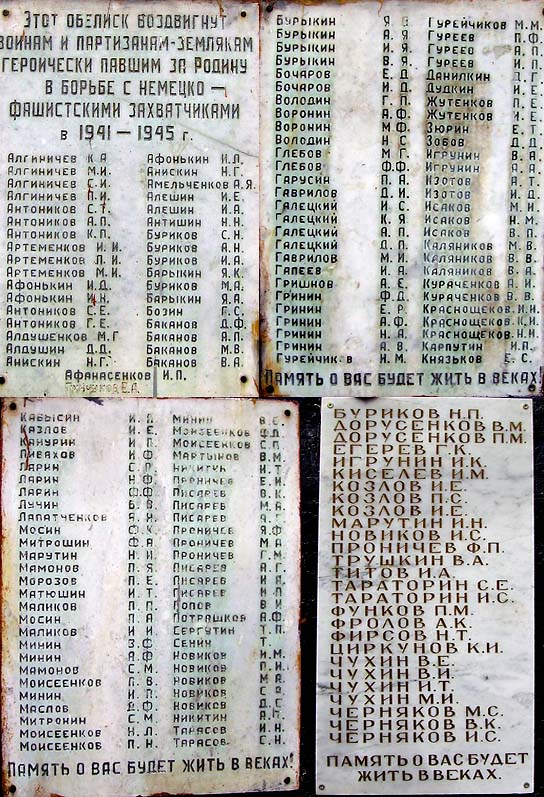 Этот обелиск воздвигнут
воинам и партизанам-землякам
героически павшим за Родину
в борьбе с немецко —
фашистскими захватчиками
в 1941 — 1945 г.
Алгиничев К.А. Афонькин И.Л.
Алгиничев М.И. Анискин Н.Г.
Алгиничев С.И. Амельченков А.Я.
Алгиничев П.И. Алешин И.Е.
Антоников С.Т. Алешин И.А.
Антоников А.П. Антишин Н.Н.
Антоников К.П. Буриков С.Н.
Артеменков И.И. Буриков А.Н.
Артеменков Л.И. Буриков И.А.
Артеменков М.И. Барыкин Я.К.
Афонькин И.Д. Буриков М.А.
Афонькин И.Н. Барыкин Я.А.
Антоников С.Е. Бозин Г.С.
Антоников Г.Е. Баканов Д.Ф.
Алдушенков М.Г. Баканов А.П.
Алдушин Д.Д. Баканов М.В.
Анискин Н.Г. Баканов В.А.
Афанасенков И.П.
Е.А.
Бурыкин Я.В. Гурейчиков М.М.
Бурыкин А.Я. Гуреев П.Ф.
Бурыкин И.Я. Гуреев А.П.
Бочаров Е.Д. Данилкин Д.Г.
Бочаров И.Д. Дудкин И.Е.
Володин Г.П. Жутенков П.Е.
Воронин А.Ф. Жутенков И.Е.
Воронин М.Ф. Зюрин Е.Т.
Володин Н.С. Зобов Д.Д.
Глебов М.Г. Игрунин В.А.
Глебов Ф.Ф. Игрунин А.А.
Гарсин П.А. Изотов А.Т.
Гаврилов Д.И. Изотов Д.И.
Галецкий И.С. Исаков М.И.
Галецкий К.Я. Исаков Н.М.
Галецкий А.П. Исаков В.П.
Галецкий Д.П. Каляников М.В.
Гаврилов М.И. Каляников В.
Гапеев И.А. Каляников В.А.
Гришнов А.Е. Кураченков А.И.
Гринин Ф.Д. Кураченков В.В.
Гринин Е.Р. Краснощеков И.Н.
Гринин А.Ф. Краснощеков К.И.
Гринин Н.А. Карпутин И.П.
Гурейчиков Н.М. Князьков Е.С.
Память о вас будет жить в веках!
Кабысин И.П. Минин В.Е.
Казлов И.Е. Моисеенков Ф.Д.
Канурин И.П. Моисеенков С.П.
И.Ф. Мартынов В.М.
Ларин С.Р. Никитин И.Т.
Ларин Н.Ф. Проничев Е.И.
Ларин Ф.Ф. Писарев В.К.
Лучин Б.В. Писарев М.А.
Лапатченков Я.И. Писарев А.Г.
Мосин Ф.К. Проничев А.Ф.
Митрошин Ф.А. Проничев М.А.
Марутин Н.И. Проничев Г.М.
Мамонов П.Я. Писарев А.Г.
Морозов П.Е. Писарев И.И.
Матюшин И.Т. Писарев И.И.
Маликов П.П. Попов В.И.
Мосин П.А. Потрашков А.Ф.
Маликов И.И. Сергутин Т.П.
Минин З.Ф. Сенин Т.
Минин А.Ф. Новиков И.М.
Мамонов С.М. Новиков П.И.
Моисеенков П.В. Новиков М.А.
Минин Н.П. Новиков С.
Маслов Д.Ф. Новиков Д.С.
Митронин С.М. Никитин А.П.
Моисеенков Н.Л. Тарасов И.Н.
Моисеенков П.Н. Тарасов С.Н.
Память о вас будет жить в веках!
БУРИКОВ Н.П.
ДОРУСЕНКОВ В.М.
ДОРУСЕНКОВ П.М.
ЕГЕРЕВ Г.К.
ИГРУНИН И.К.
КИСЕЛЕВ И.М.
КОЗЛОВ И.Е.
КОЗЛОВ П.С.
КОЗЛОВ И.Е.
МАРУТИН И.Н.
НОВИКОВ И.С.
ПРОНИЧЕВ Ф.П.
ТРУШКИН В.А.
ТИТОВ И.А.
ТАРАТОРИН С.Е.
ТАРАТОРИН И.С.
ФУНКОВ П.М.
ФРОЛОВ А.К.
ФИРСОВ Н.Т.
ЦИРКУНОВ К.И.
ЧУХИН В.Е.
ЧУХИН В.И.
ЧУХИН И.Т.
ЧУХИН М.И.
ЧЕРНЯКОВ М.С.
ЧЕРНЯКОВ В.К.
ЧЕРНЯКОВ И.С.
ПАМЯТЬ О ВАС БУДЕТ
ЖИТЬ В ВЕКАХ.